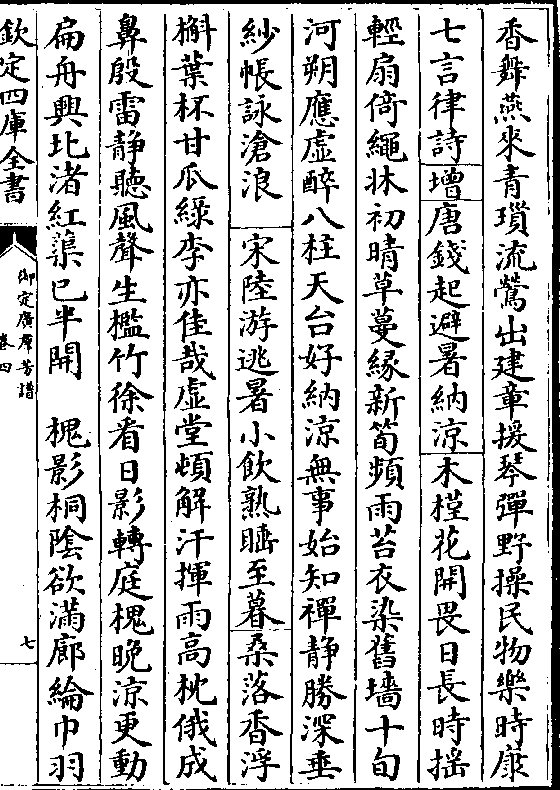 香舞燕來青瑣流鶯出建章援琴彈野操民物樂時康
七言律詩增唐錢起避暑納涼木槿花開畏日長時揺
輕扇倚繩牀初晴草蔓緣新笋頻雨苔衣染舊墻十旬
河朔應虛醉八柱天台好納涼無事始知禪静勝深垂
紗帳詠滄浪宋陸游逃暑小飲熟睡至暮桑落香浮
槲葉杯甘瓜綠李亦佳哉虛堂頓解汗揮雨高枕俄成
鼻殷雷静聽風聲生檻竹徐看日影轉庭槐晚涼更動
扁舟興北渚紅蕖已半開　槐影桐陰欲滿廊綸巾羽
欽定四庫全書
御定廣群芳譜
卷四
七